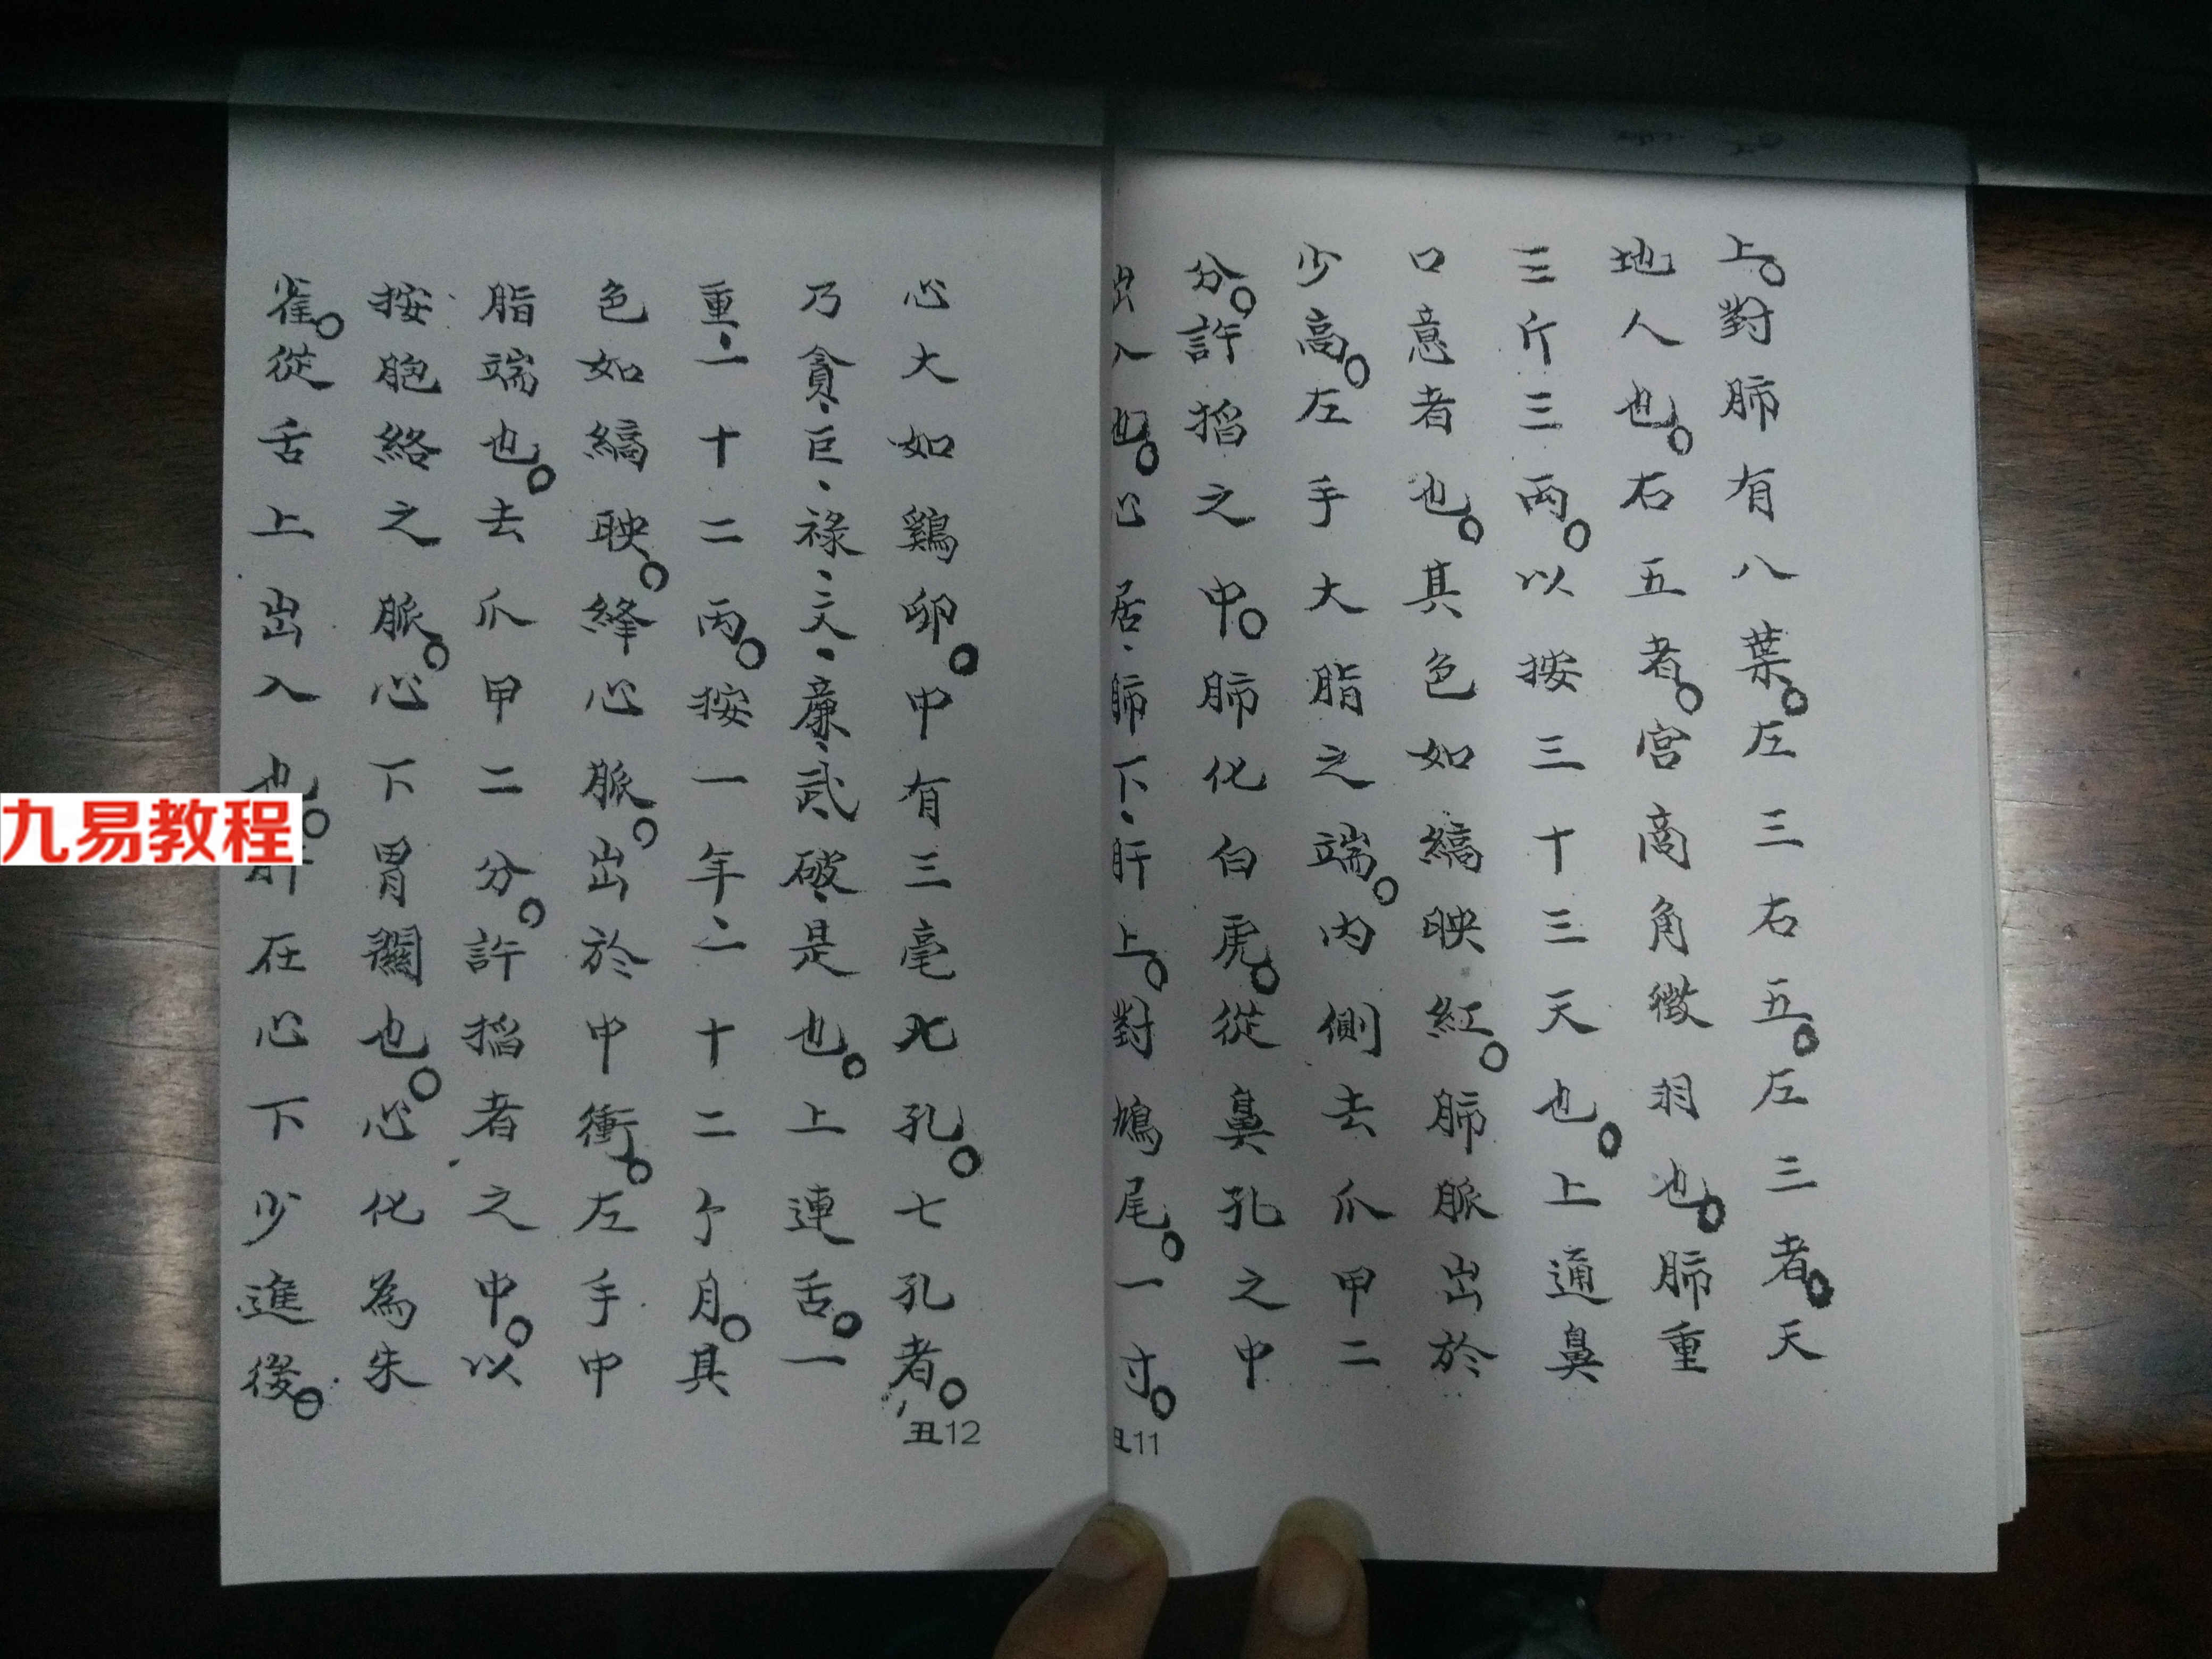 上。對肺有八葉。左三右五。左三者。天
地人也。右五者。宮商角徵羽也。肺重
三斤三兩。以按三十三天也。上通鼻
口意者也。其色如縞映紅。肺脈出於
少高。左手大脂之端。內側去爪甲二
分。許搯之中。肺化白虎。從鼻孔之中
出入也。心居、肺下、肝上。對鳩尾。一寸。
丑11
心大如鷄卵。中有三毫七孔。七孔者。
乃貪、巨、祿、文、廉、武、破、是也。上連舌。一
重、一十二兩。按一年、一十二个月。其
色如縞映。絳心脈。出於中衝。左手中
脂端也。去爪甲二分。許搯者之中。以
按胞絡之脈。心下胃關也。心化為朱
雀。從舌上出入也。肝在心下少進後。
丑12
九易教程